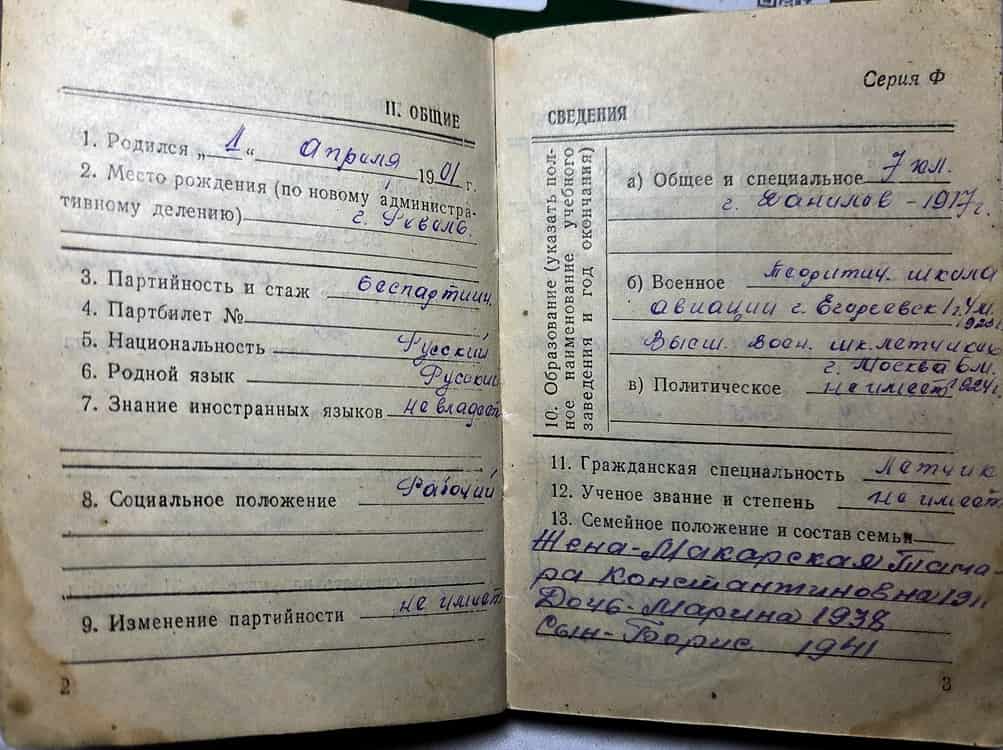 II. ОБЩИЕ
1. Родился „1“ Апреля 1901 г.
2. Место рождения (по новому администра-
тивному делению) г. Ревель.
3. Партийность и стаж беспартийн.
4. Партбилет №
5. Национальность Русский
6. Родной язык Русский
7. Знание иностранных языков не владеет
8. Социальное положение Рабочий
9. Изменение партийности не имеет
2
Серия Ф
СВЕДЕНИЯ
10. Образование (указать пол-
ное наименование учебного
заведения и год окончания)
а) Общее и специальное 7 кл.
г. Данилов - 1917 г.
б) Военное Теоритич. школа
авиации г. Егорьевск 1 г. 4 м.
1923
Высш. воен. шк. летчиков
г. Москва 6 м.
в) Политическое не имеет 1924 г.
11. Гражданская специальность Летчик
12. Ученое звание и степень не имеет
13. Семейное положение и состав семьи
Жена - Макарская Тама-
ра Константиновна 1911
Дочь - Марина 1938
Сын - Борис 1941
3